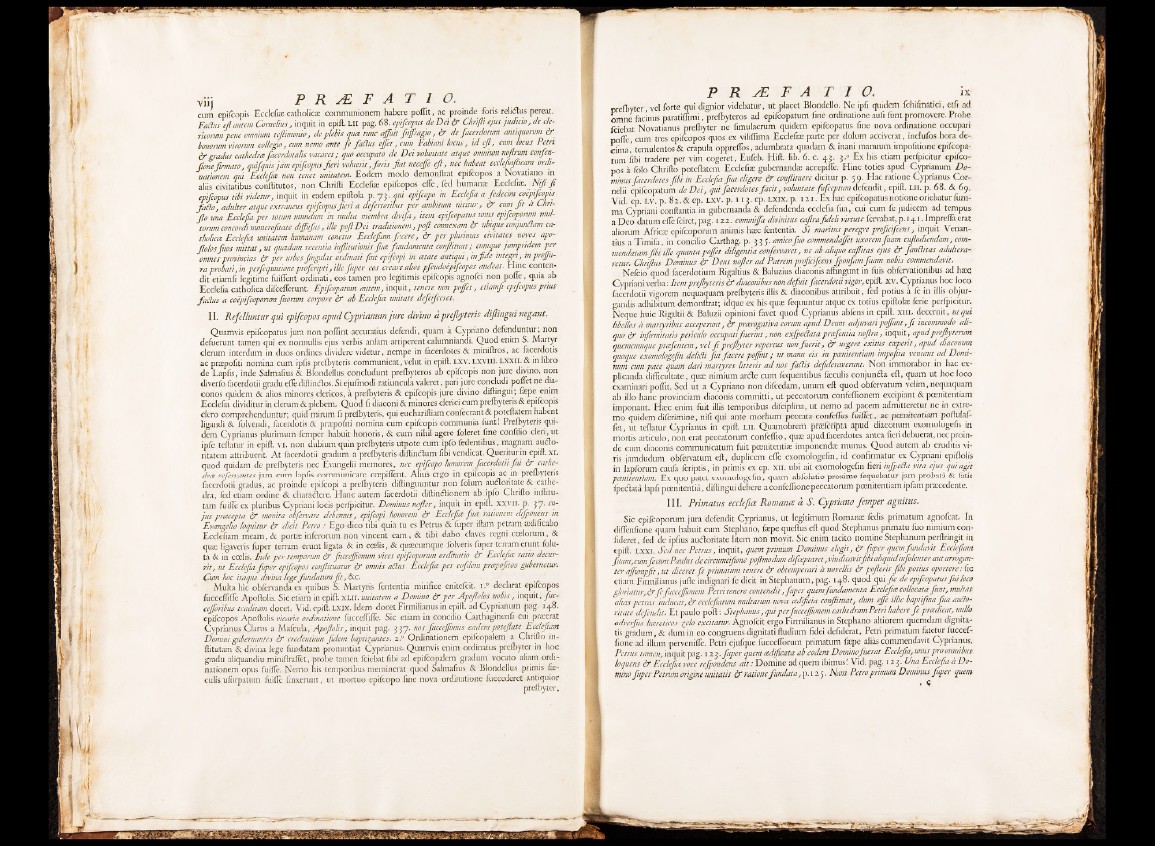 viij P R Æ F A T I O.
cum episcopis Ecclesiæ catholicæ communionem habere possit, ac proinde foris relictus pereat.
Factus est autem Cornelius, inquit in epist. LII. pag. 68. episcopus de Dei & Christi ejus judicio, de cle-
ricorum pene omnium testimonio, de plebis quæ tunc affuit suffragio, & de sacerdotum antiquorum &
bonorum virorum collegio, cum nemo ante se factus esset, cum Fabiani locus, id est, cum locus Petri
& gradus cathedræ sacerdotalis vacaret; quo occupato de Dei voluntate atque omnium nostrum consen-
sione firmato, quisquis jam episcopus fieri voluerit, foris fiat necesse est, nec habeat ecclesiasticam ordi-
nationem qui Ecclesiæ non tenet unitatem. Eodem modo demonstrat episcopos a Novatiano in
aliis civitatibus constitutos, non Christi Ecclesiæ episcopos esse, sed humanæ Ecclesiæ. Nisi si
episcopus tibi videtur, inquit in eadem epistola p. 73. qui episcopo in Ecclesia a sedecim coëpiscopis
facto, adulter atque extraneus episcopus fieri a desertoribus per ambitum nititur, & cum sit à Chri-
sto una Ecclesia per totum mundum in multa membra divisa, item episcopatus unus episcoporum mul-
torum concordi numerositate diffusus, ille post Dei traditionem, post connexam & ubique conjunctam ca-
tholicæ Ecclesiæ unitatem humanam conetur Ecclesiam facere, & per plurimas civitates novos apo-
stolos suos mittat, ut quædam recentia institutionis suæ fundamenta constituat; cumque jampridem per
omnes provincias & per urbes singulas ordinati sint episcopi in ætate antiqui, in fide integri, in pressu-
ra probati, in persequutione proscripti, ille super eos creare alios pseudoepiscopos audeat. Hinc conten-
dit etiamsi legitime fuissent ordinati, eos tamen pro legitimis episcopis agnosci non posse, quia ab
Ecclesia catholica discesserunt. Episcopatum autem, inquit, tenere non posset, etiamsi episcopus prius
factus a coëpiscoporum suorum corpore & ab Ecclesiæ unitate descisceret.
II. Refelluntur qui episcopos apud Cyprianum jure divino à presbyteris distingui negant.
Quamvis episcopatus jura non possint accuratius defendi, quam à Cypriano defenduntur; non
defuerunt tamen qui ex nonnullis ejus verbis ansam arriperent calumniandi. Quod enim S. Martyr
clerum interdum in duos ordines dividere videtur, nempe in sacerdotes & ministros, ac sacerdotis
ac præpositi nomina cum ipsis presbyteris communicat, velut in epist. LXV. LXVIII. LXXII. & in libro
de Lapsis, inde Salmasius & Blondellus concludunt presbyteros ab episcopis non jure divino, non
diverso sacerdotii gradu esse distinctos. Si ejusmodi ratiuncula valeret, pari jure concludi posset ne dia-
conos quidem & alios minores clericos, à presbyteris & episcopis jure divino distingui; sæpe enim
Ecclesia dividitur in clerum & plebem. Quod si diaconi & minores clerici cum presbyteris & episcopis
clero comprehenduntur; quid mirum si presbyteris, qui eucharistiam consecrant & potestatem habent
ligandi & solvendi, sacerdotis & præpositi nomina cum episcopis communia sunt! Presbyteris qui-
dem Cyprianus plurimum semper habuit honoris, & cum nihil agere soleret sine consilio cleri, ut
ipse testatur in epist. VI. non dubium quin presbyteris utpote cum ipso sedentibus, magnam aucto-
ritatem attribuerit. At sacerdotii gradum a presbyteris distinctum sibi vendicat. Queritur in epist. XI.
quod quidam de presbyteris nec Evangelii memores, nec episcopo honorem sacerdotii sui & cathe-
dræ reservantes jam cum lapsis communicare cœpissent. Alius ergo in episcopis ac in presbyteris
sacerdotii gradus, ac proinde episcopi a presbyteris distinguuntur non solum auctoritate & cathe-
dra, sed etiam ordine & charactere. Hanc autem sacerdotii distinctionem ab ipso Christo institu-
tam fuisse ex pluribus Cypriani locis perspicitur. Dominus noster, inquit in epist. XXVII. p. 37. cu-
jus præcepta & monita observare debemus, episcopi honorem & Ecclesiæ suæ rationem disponens in
Evangelio loquitur & dicit Petro: Ego dico tibi quia tu es Petrus & super istam petram ædificabo
Ecclesiam meam, & portæ inferorum non vincent eam, & tibi dabo claves regni cœlorum, &
quæ ligaveris super terram erunt ligata & in cœlis, & quæcumque solveris super terram erunt solu-
ta & in cœlis. Inde per temporum & successionum vices episcoporum ordinatio & Ecclesiæ ratio decur-
rit, ut Ecclesia super episcopos constituatur & omnis actus Ecclesiæ per eosdem præpositos gubernetur.
Cum hoc itaque divina lege fundatum sit, &c.
Multa hic observanda ex quibus S. Martyris sententia mirifice enitescit. 1.° declarat episcopos
successisse Apostolis. Sic etiam in epist. XLII. unitatem a Domino & per Apostolos nobis, inquit, suc-
cessoribus traditam docet. Vid. epist. LXIX. Idem docet Firmilianus in epist. ad Cyprianum pag. 148.
episcopos Apostolis vicaria ordinatione successisse. Sic etiam in concilio Carthaginensi cui præerat
Cyprianus Clarus a Mascula, Apostolis, inquit pag. 337. nos successimus eadem potestate Ecclesiam
Domini gubernantes & credentium fidem baptizantes. 2.° Ordinationem episcopalem a Christo in-
stitutam & divina lege fundatam pronuntiat Cyprianus. Quamvis enim ordinatus presbyter in hoc
gradu aliquandiu ministrasset, probe tamen sciebat sibi ad episcopalem gradum vocato aliam ordi-
nationem opus fuisse. Nemo his temporibus meminerat quod Salmasius & Blondellus primis sæ-
culis usurpatum fuisse finxerunt, ut mortuo episcopo sine nova ordinatione succederet antiquior
presbyter,
P R Æ F A T I O. ix
presbyter, vel forte qui dignior videbatur, ut placet Blondello. Ne ipsi quidem schismatici, etsi ad
omne facinus paratissimi, presbyteros ad episcopatum sine ordinatione ausi sunt promovere. Probe
sciebat Novatianus presbyter ne simulacrum quidem episcopatus sine nova ordinatione occupari
posse, cum tres episcopos quos ex vilissima Ecclesiæ parte per dolum acciverat, inclusos hora de-
cima, temulentos & crapula oppressos, adumbrata quadam & inani manuum impositione episcopa-
tum sibi tradere per vim cogeret, Euseb. Hist. lib. 6. c. 43. 3.° Ex his etiam perspicitur episco-
pos à solo Christo potestatem Ecclesiæ gubernandæ accepisse. Hinc toties apud Cyprianum Do-
minus sacerdotes sibi in Ecclesia sua eligere & constituere dicitur p. 59. Hac ratione Cyprianus Cor-
nelii episcopatum de Dei, qui sacerdotes facit, voluntate susceptum defendit, epist. LII. p. 68. & 69.
Vid. ep. LV. p. 82. & ep. LXV. p. 113. ep. LXIX. p. 121. Ex hac episcopatus notione oriebatur sum-
ma Cypriani constantia in gubernanda & defendenda ecclesia sua, cui cum se judicem ad tempus
a Deo datum esse sciret, pag. 122. commissa divinitus castra fideli virtute servabat, p. 141. Impressa erat
aliorum Africæ episcoporum animis hæc sententia. Si maritus peregre proficiscens, inquit Venan-
tius a Timisa, in concilio Carthag. p. 335. amico suo commendasset uxorem suam custodiendam, com-
mendatam sibi ille quanta posset diligentia conservaret, ne ab aliquo castitas ejus & sanctitas adultera-
retur. Christus Dominus & Deus noster ad Patrem proficiscens sponsam suam nobis commendavit.
Nescio quod sacerdotium Rigaltius & Baluzius diaconis affingunt in suis observationibus ad hæc
Cypriani verba: Item presbyteris & diaconibus non defuit sacerdotii vigor, epist. XV. Cyprianus hoc loco
sacerdotii vigorem nequaquam presbyteris illis & diaconibus attribuit, sed potius à se in illis objur-
gandis adhibitum demonstrat; idque ex his quæ sequuntur atque ex totius epistolæ serie perspicitur.
Neque huic Rigaltii & Baluzii opinioni favet quod Cyprianus abiens in epist. XIII. decernit, ut qui
libellos à martyribus acceperunt, & prærogativa eorum apud Deum adjuvari possunt, si incommodo ali-
quo & infirmitatis periculo occupati fuerint, non exspectata præsentia nostra, inquit, apud presbyterum
quemcumque præsentem, vel si presbyter repertus non fuerit, & urgere exitus cœperit, apud diaconum
quoque exomologesin delicti sui facere possint; ut manu eis in pœnitentiam imposita veniant ad Domi-
num cum pace quam dari martyres litteris ad nos factis desideraverunt. Non immorabor in hac ex-
plicanda difficultate, quæ nimium arcte cum sequentibus sæculis conjuncta est, quam ut hoc loco
examinari possit. Sed ut a Cypriano non discedam, unum est quod observatum velim, nequaquam
ab illo hanc provinciam diaconis committi, ut peccatorum confessionem excipiant & pœnitentiam
imponant. Hæc enim fuit illis temporibus disciplina, ut nemo ad pacem admitteretur ne in extre-
mo quidem discrimine, nisi qui ante morbum peccata confessus fuisset, ac pœnitentiam postulas-
set, ut testatur Cyprianus in epist. LII. Quamobrem præscripta apud diaconum exomologesis in
mortis articulo, non erat peccatorum confessio, quæ apud sacerdotes antea fieri debuerat, nec proin-
de cum diaconis communicatum fuit pœnitentiæ imponendæ munus. Quod autem ab eruditis vi-
ris jamdudum observatum est, duplicem esse exomologesin, id confirmatur ex Cypriani epistolis
in lapsorum causa scriptis, in primis ex ep. XII. ubi ait exomologesin fieri inspecta vita ejus qui agit
pœnitentiam. Ex quo patet exomologesin, quam absolutio proxime sequebatur jam probati & satis
spectati lapsi pœnitentiâ, distingui debere a confessione peccatorum pœnitentiam ipsam præcedente.
III. Primatus ecclesiæ Romanæ à S. Cypriano semper agnitus.
Sic episcoporum jura defendit Cyprianus, ut legitimum Romanæ sedis primatum agnoscat. In
dissensione quam habuit cum Stephano, sæpe questus est quod Stephanus primatu suo nimium con-
fideret, sed de ipsius auctoritate litem non movit. Sic enim tacito nomine Stephanum perstringit in
epist. LXXI. Sed nec Petrus, inquit, quem primum Dominus elegit, & super quem fundavit Ecclesiam
suam, cum secum Paulus de circumcisione postmodum disceptaret, vindicavit sibi aliquid insolenter aut arrogan-
ter assumpsit, ut diceret se primatum tenere & obtemperari à novellis & posteris sibi potius oportere: sic
etiam Firmilianus juste indignari se dicit in Stephanum, pag. 148. quod qui sic de episcopatus sui loco
gloriatur, & se successionem Petri tenere contendit, super quem fundamenta Ecclesiæ collocata sunt, multas
alias petras inducat, & ecclesiarum multarum nova ædificia constituat, dum esse illic baptisma sua aucto-
ritate defendit. Et paulo post: Stephanus, qui per successionem cathedram Petri habere se prædicat, nullo
adversus hæreticos zelo excitatur. Agnoscit ergo Firmilianus in Stephano altiorem quemdam dignita-
tis gradum, & dum in eo congruens dignitati studium fidei desiderat, Petri primatum fatetur succes-
sione ad illum pervenisse. Petri ejusque successorum primatum sæpe alias commendavit Cyprianus.
Petrus tamen, inquit pag. 123. super quem ædificata ab eodem Domino fuerat Ecclesia, unus pro omnibus
loquens & Ecclesiæ voce respondens ait: Domine ad quem ibimus! Vid. pag. 123. Una Ecclesia à Do-
mino super Petrum origine unitatis & ratione fundata, p. 125. Nam Petro primum Dominus super quem